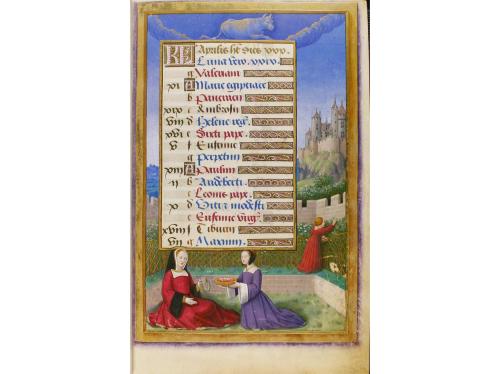 KL Aprilis ht dies xxx.
Luna vero. xxix.
g Valeriani
xi A Marie egiptiace
b Pancracii
xix c Ambrosii
viii d Helene reg
xvi e Sixti pape
v f Eufemie
g Perpetui
xiii A Paulini
ii b Audeberti
c Leonis pape
x d Victor modesti
e Eufemie virg
xviii f Tiburcii
vii g Maximi